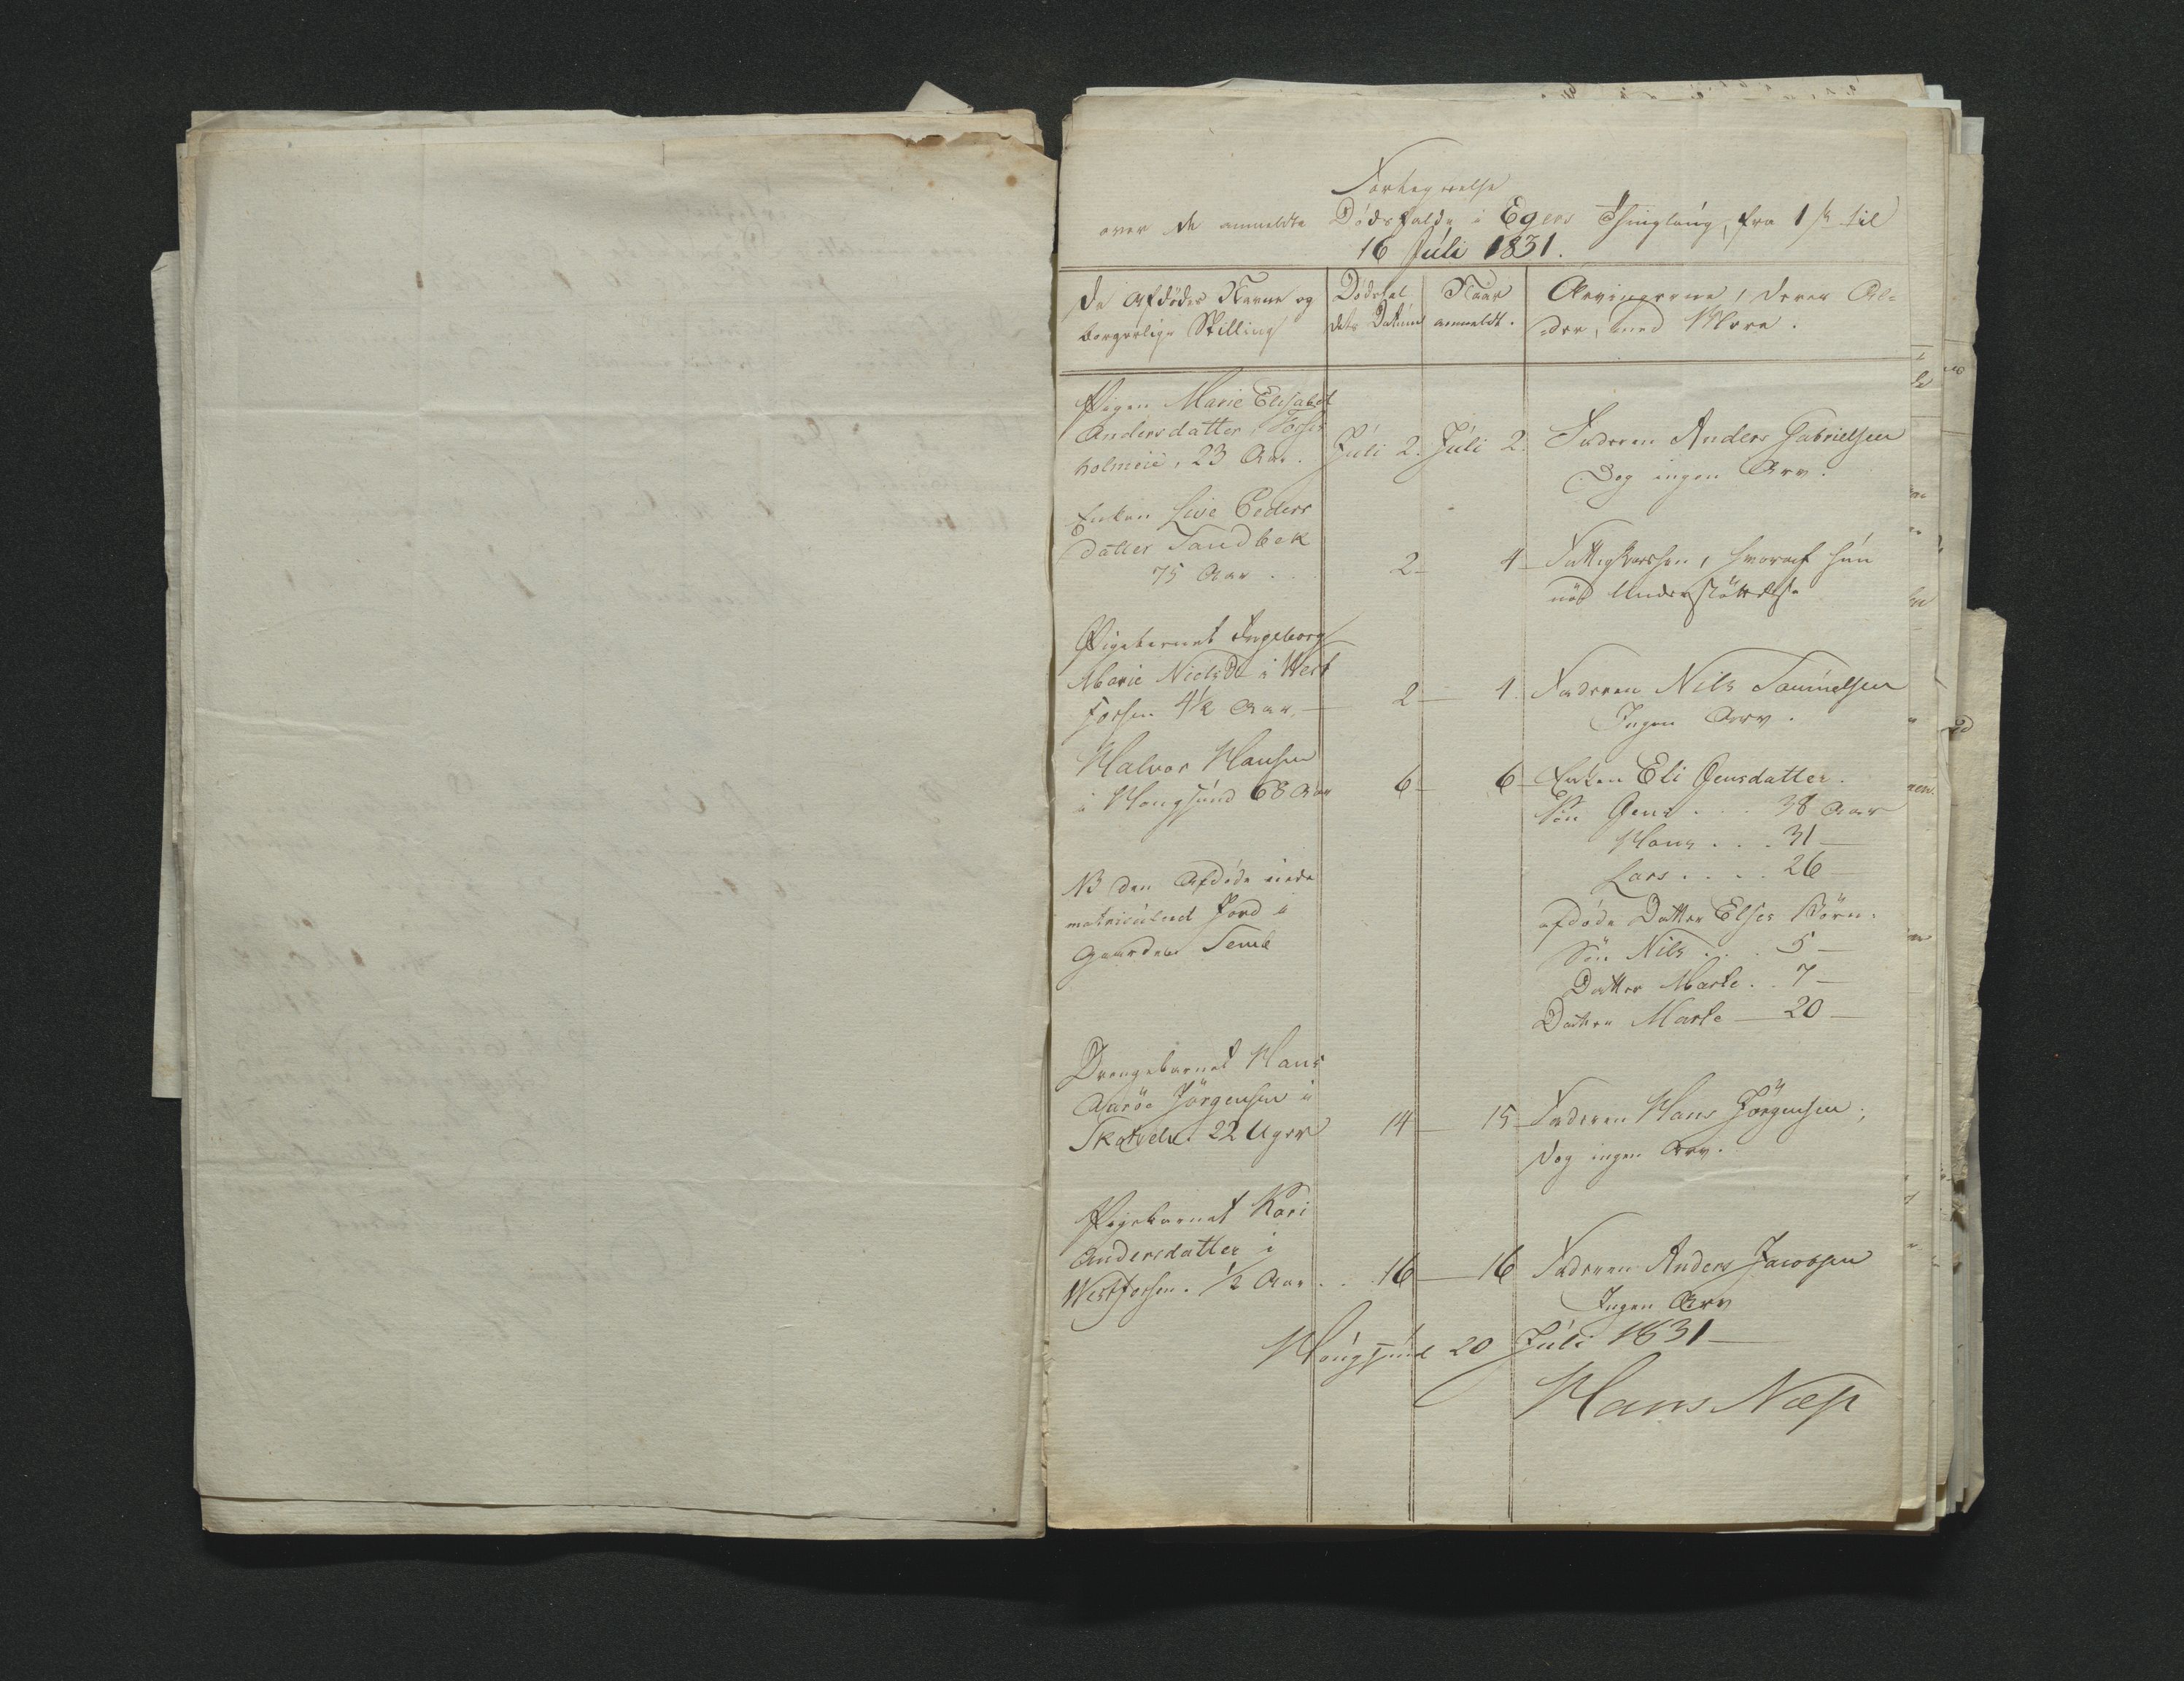 Fortegnelse
over de anmeldte Dødsfalde i Egers Thinglaug, fra 1ste til
16 Juli 1831.
De Afdødes Navne og
borgerlige Stilling
Dødsfal
dets Datum
Naar
anmeldt.
Arvingerne, deres Al-
der, med Mere.
Pigen Marie Elisabet
Andersdatter, Forsse
holmeie, 23 Aar.
Juli 2.
Juli 2.
Faderen Anders Gabrielsen
Dog ingen Arv.
Enken Live Peders
datter Sandbek
75 Aar
2
4
Fattigkassen, hvoraf hun
nød Understøttelse
Pigebarnet Ingeborg
Marie NielsDr i Vest
fossen 4½ Aar,
2
4
Faderen Nils Samuelsen
Ingen Arv.
Halvor Hansen
i Hougsund 68 Aar
6
6
Enken Eli Jensdatter.
Søn Jens . . . 38 Aar
Hans . . . 31
Lars . . . . 26
NB den Afdøde eiede
matriculeret Jord i
Gaarden Semb
afdøde Datter Elses Børn:
Søn Nils . . . 5
Datter Marte . . 7
Datter Marte 20
Drengebarnet Hans
Aarøe Jörgensen i
Skotselv. 22 Uger
14
15
Faderen Hans Jörgensen,
dog ingen Arv.
Pigebarnet Kari
Andersdatter i
Vestfossen. ½ Aar . .
16
16
Faderen Anders Jacobsen
Ingen Arv
Hougsund 20 Juli 1831
Hans Næss